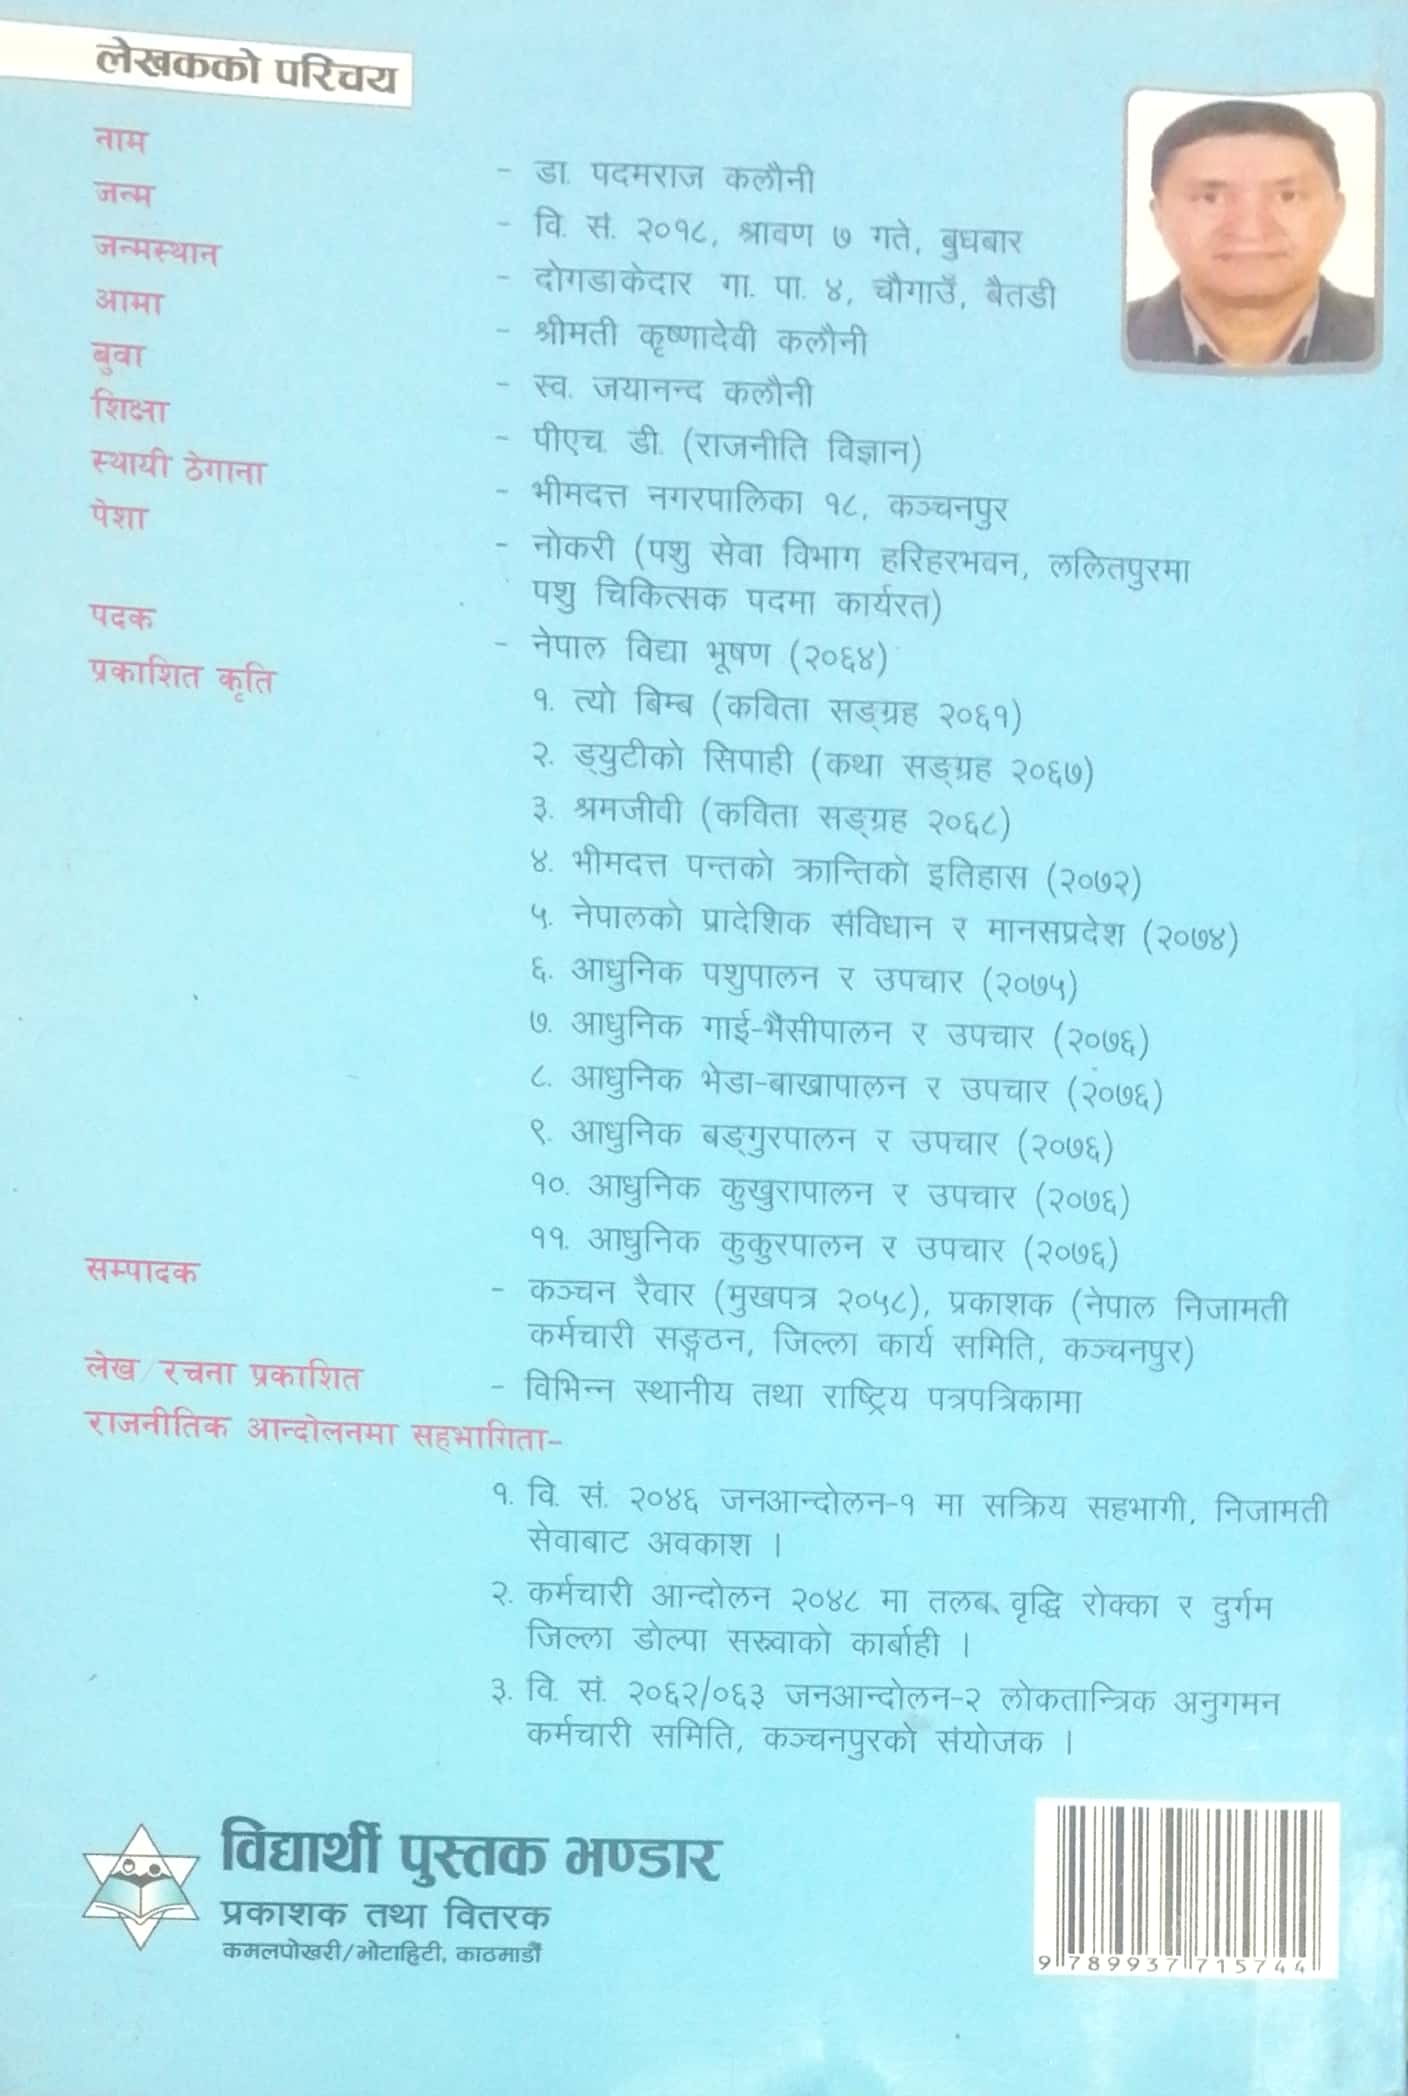 लेखकको परिचय
नाम - डा. पदमराज कलौनी
जन्म - वि. सं. २०१८, श्रावण ७ गते, बुधबार
जन्मस्थान - दोगडाकेदार गा. पा. ४, चौगाउँ, बैतडी
आमा - श्रीमती कृष्णादेवी कलौनी
बुवा - स्व. जयानन्द कलौनी
शिक्षा - पीएच. डी. (राजनीति विज्ञान)
स्थायी ठेगाना - भीमदत्त नगरपालिका १८, कञ्चनपुर
पेशा - नोकरी (पशु सेवा विभाग हरिहरभवन, ललितपुरमा
पशु चिकित्सक पदमा कार्यरत)
पदक - नेपाल विद्या भूषण (२०६४)
प्रकाशित कृति
१. त्यो बिम्ब (कविता सङ्ग्रह २०६१)
२. ड्युटीको सिपाही (कथा सङ्ग्रह २०६७)
३. श्रमजीवी (कविता सङ्ग्रह २०६८)
४. भीमदत्त पन्तको क्रान्तिको इतिहास (२०७२)
५. नेपालको प्रादेशिक संविधान र मानसप्रदेश (२०७४)
६. आधुनिक पशुपालन र उपचार (२०७५)
७. आधुनिक गाई-भैसीपालन र उपचार (२०७६)
८. आधुनिक भेडा-बाखापालन र उपचार (२०७६)
९. आधुनिक बङ्गुरपालन र उपचार (२०७६)
१०. आधुनिक कुखुरापालन र उपचार (२०७६)
११. आधुनिक कुकुरपालन र उपचार (२०७६)
सम्पादक - कञ्चन रैवार (मुखपत्र २०५८), प्रकाशक (नेपाल निजामती
कर्मचारी सङ्गठन, जिल्ला कार्य समिति, कञ्चनपुर)
लेख/रचना प्रकाशित - विभिन्न स्थानीय तथा राष्ट्रिय पत्रपत्रिकामा
राजनीतिक आन्दोलनमा सहभागिता-
१. वि. सं. २०४६ जनआन्दोलन-१ मा सक्रिय सहभागी, निजामती
सेवाबाट अवकाश ।
२. कर्मचारी आन्दोलन २०४८ मा तलब वृद्धि रोक्का र दुर्गम
जिल्ला डोल्पा सरुवाको कार्बाही ।
३. वि. सं. २०६२/०६३ जनआन्दोलन-२ लोकतान्त्रिक अनुगमन
कर्मचारी समिति, कञ्चनपुरको संयोजक ।
विद्यार्थी पुस्तक भण्डार
प्रकाशक तथा वितरक
कमलपोखरी/भोटाहिटी, काठमाडौँ
9 789937 715744